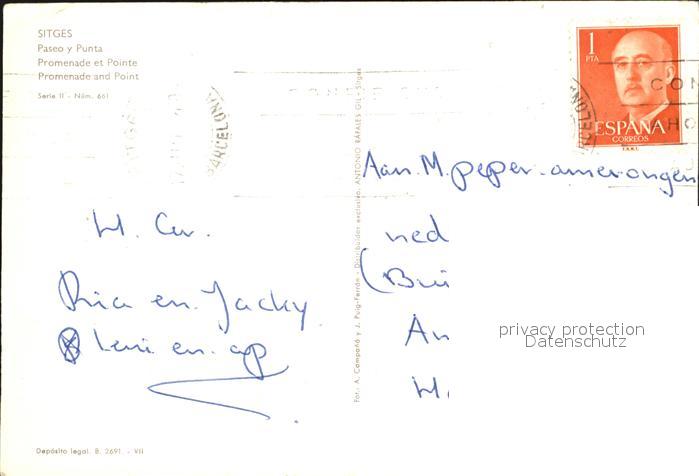 SITGES
Paseo y Punta
Promenade et Pointe
Promenade and Point
Serie II - Núm. 661
1
PTA
ESPAÑA
CORREOS
BARCELONA
BARCELONA
Fot.: A. Campañá y J. Puig-Ferrán - Distribuidor exclusivo: ANTONIO RÀFALES GIL - Sitges
Aan. M. peper-amerongen
ned
(Bui
An
H.
H. Gr.
Ria en Jacky
Leni en
privacy protection
Datenschutz
Depósito legal. B. 2691. - VII